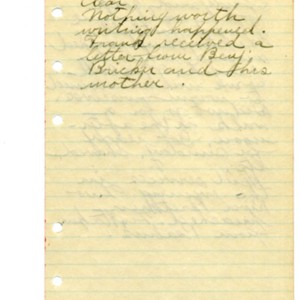 Clear
Nothing worth
writing happened.
Frank received a
letter from Benj.
Bricker and his
mother.